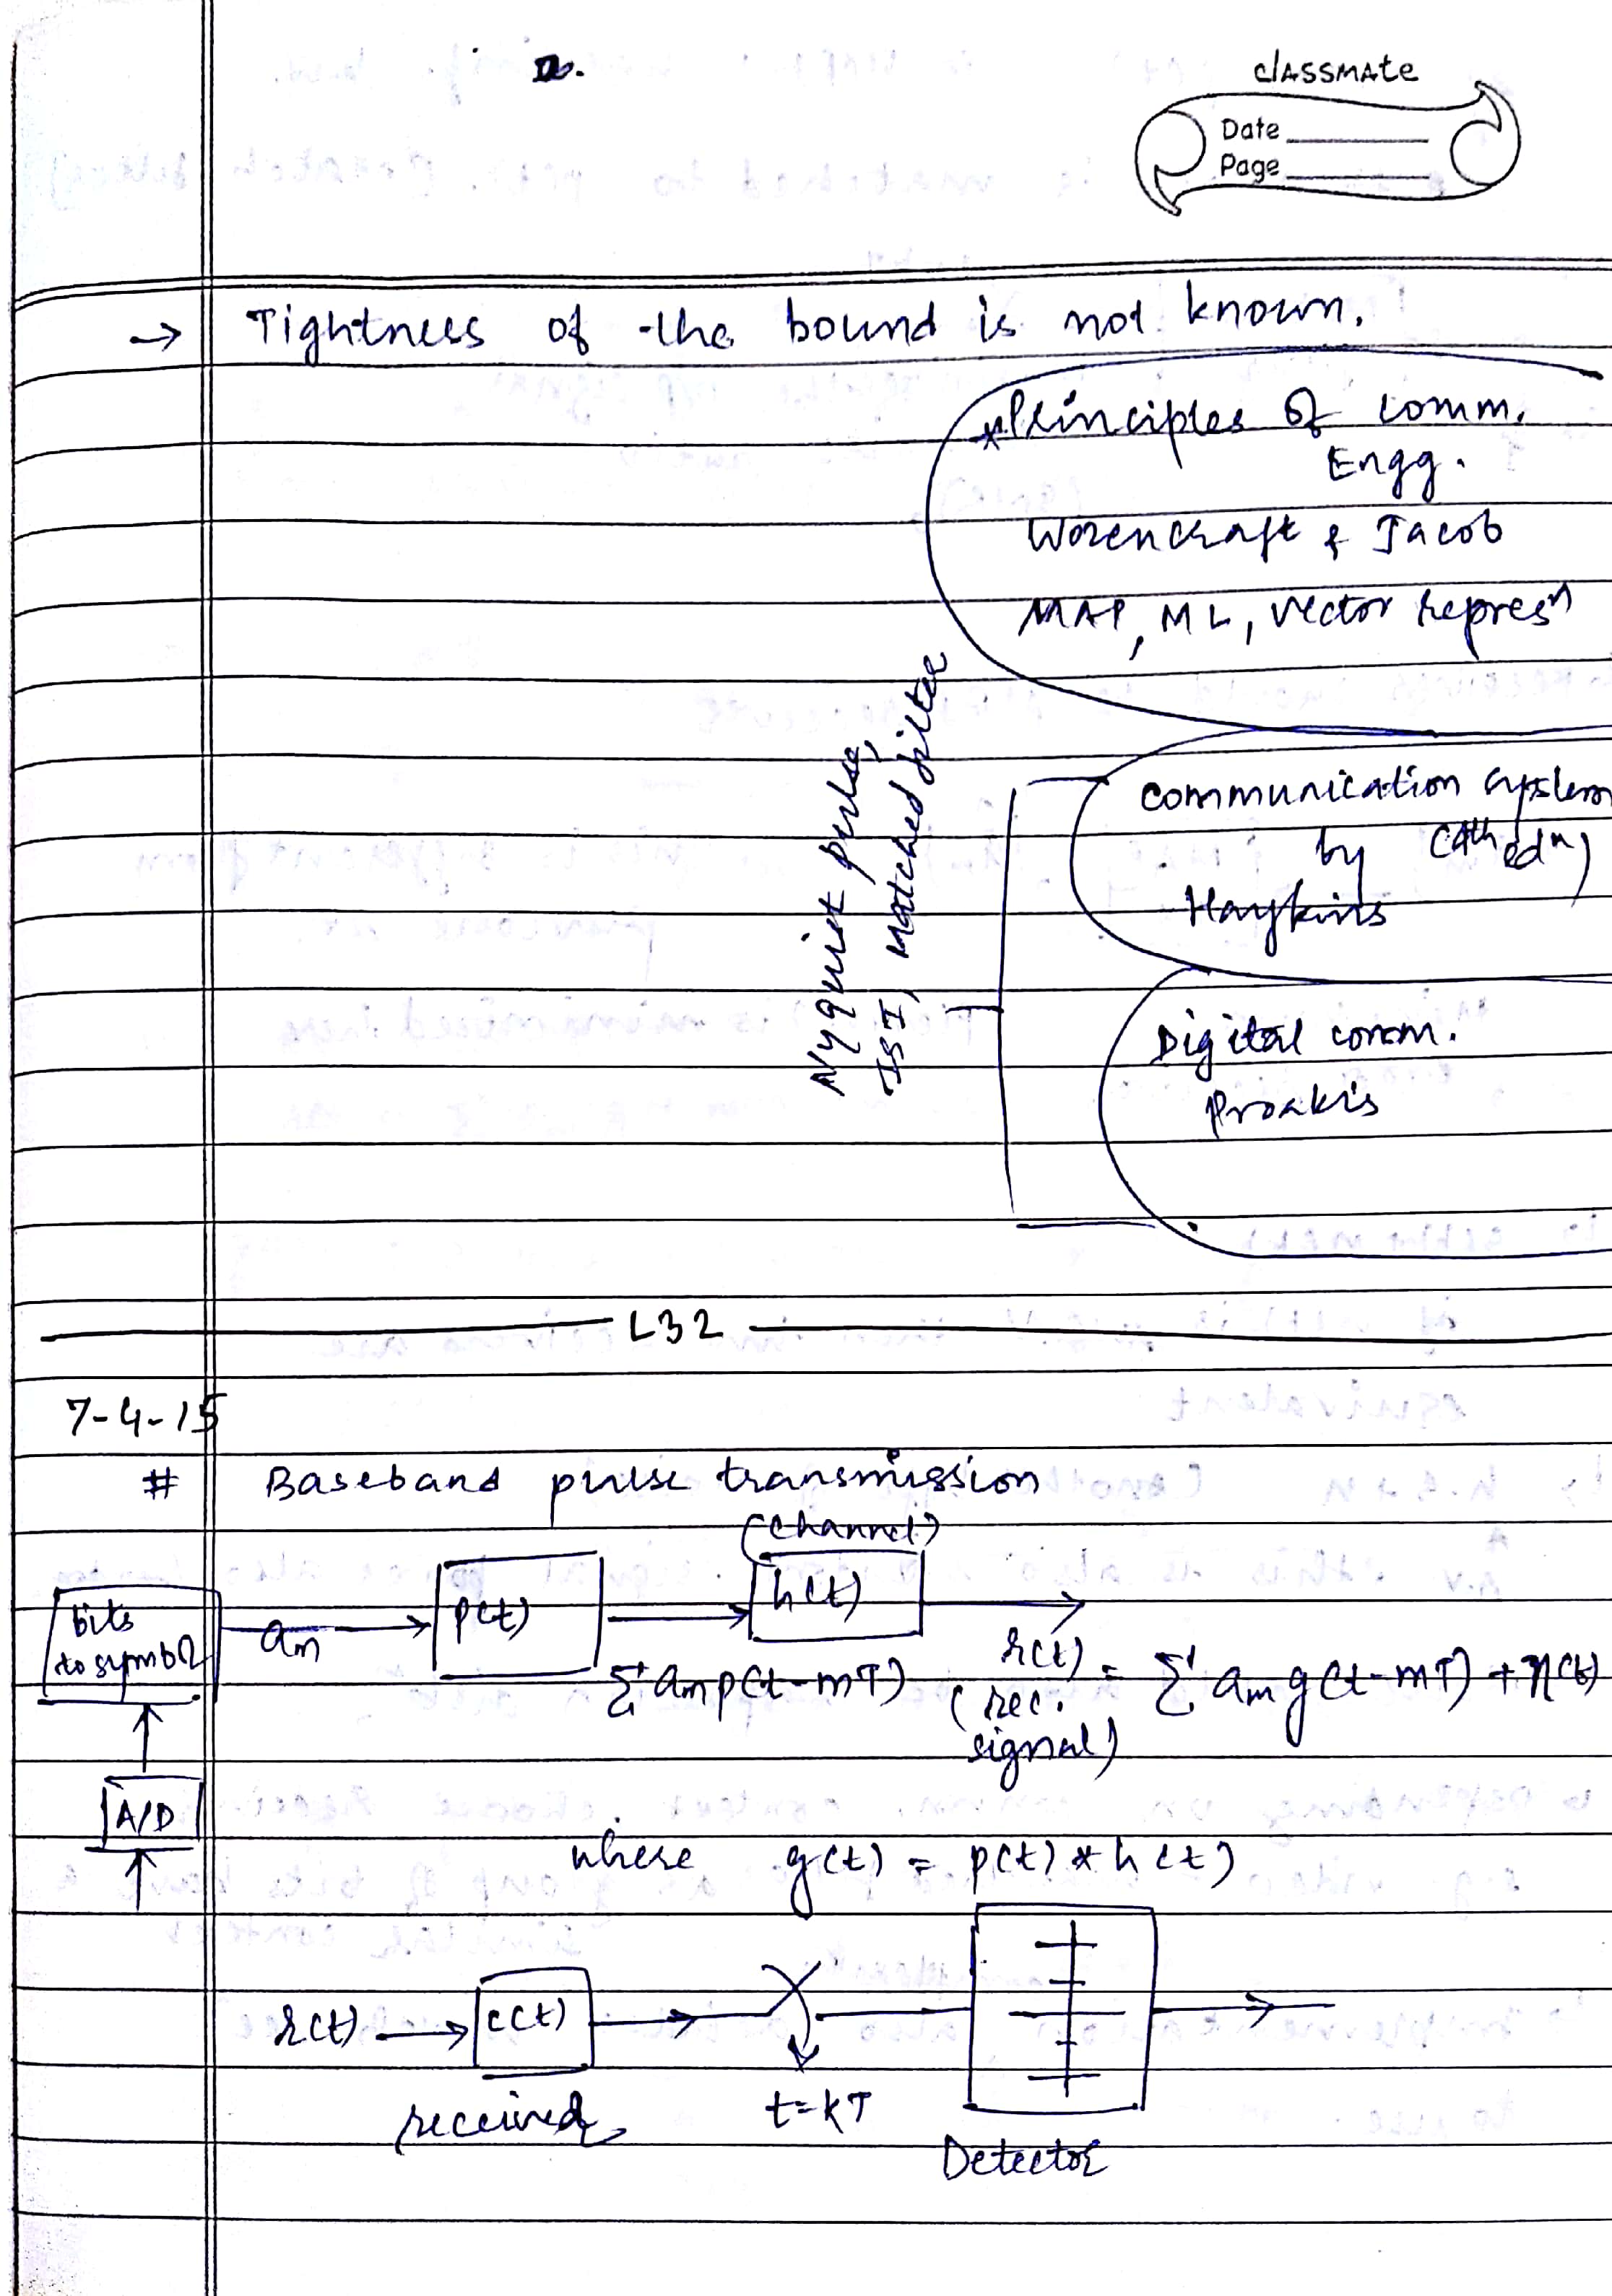 classmate
Date
Page
→ Tightness of the bound is not known.
* Principles of comm.
Engg.
Wozencraft & Jacob
MAP, ML, Vector repres^n
Nyquist pulse,
ISI, matched filter
communication system
by (4th ed^n)
Haykins
Digital comm.
Proakis
L32
7-4-15
# Baseband pulse transmission
(channel)
bits
to symbol
a_m
p(t)
h(t)
Σ a_m p(t-mT)
r(t) = Σ a_m g(t-mT) + η(t)
(rec.
signal)
A/D
where g(t) = p(t) * h(t)
r(t)
c(t)
received
t=kT
Detector